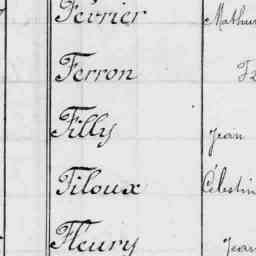 Février
Ferron
Filly Jean
Filoux Célestin
Fleury Jean